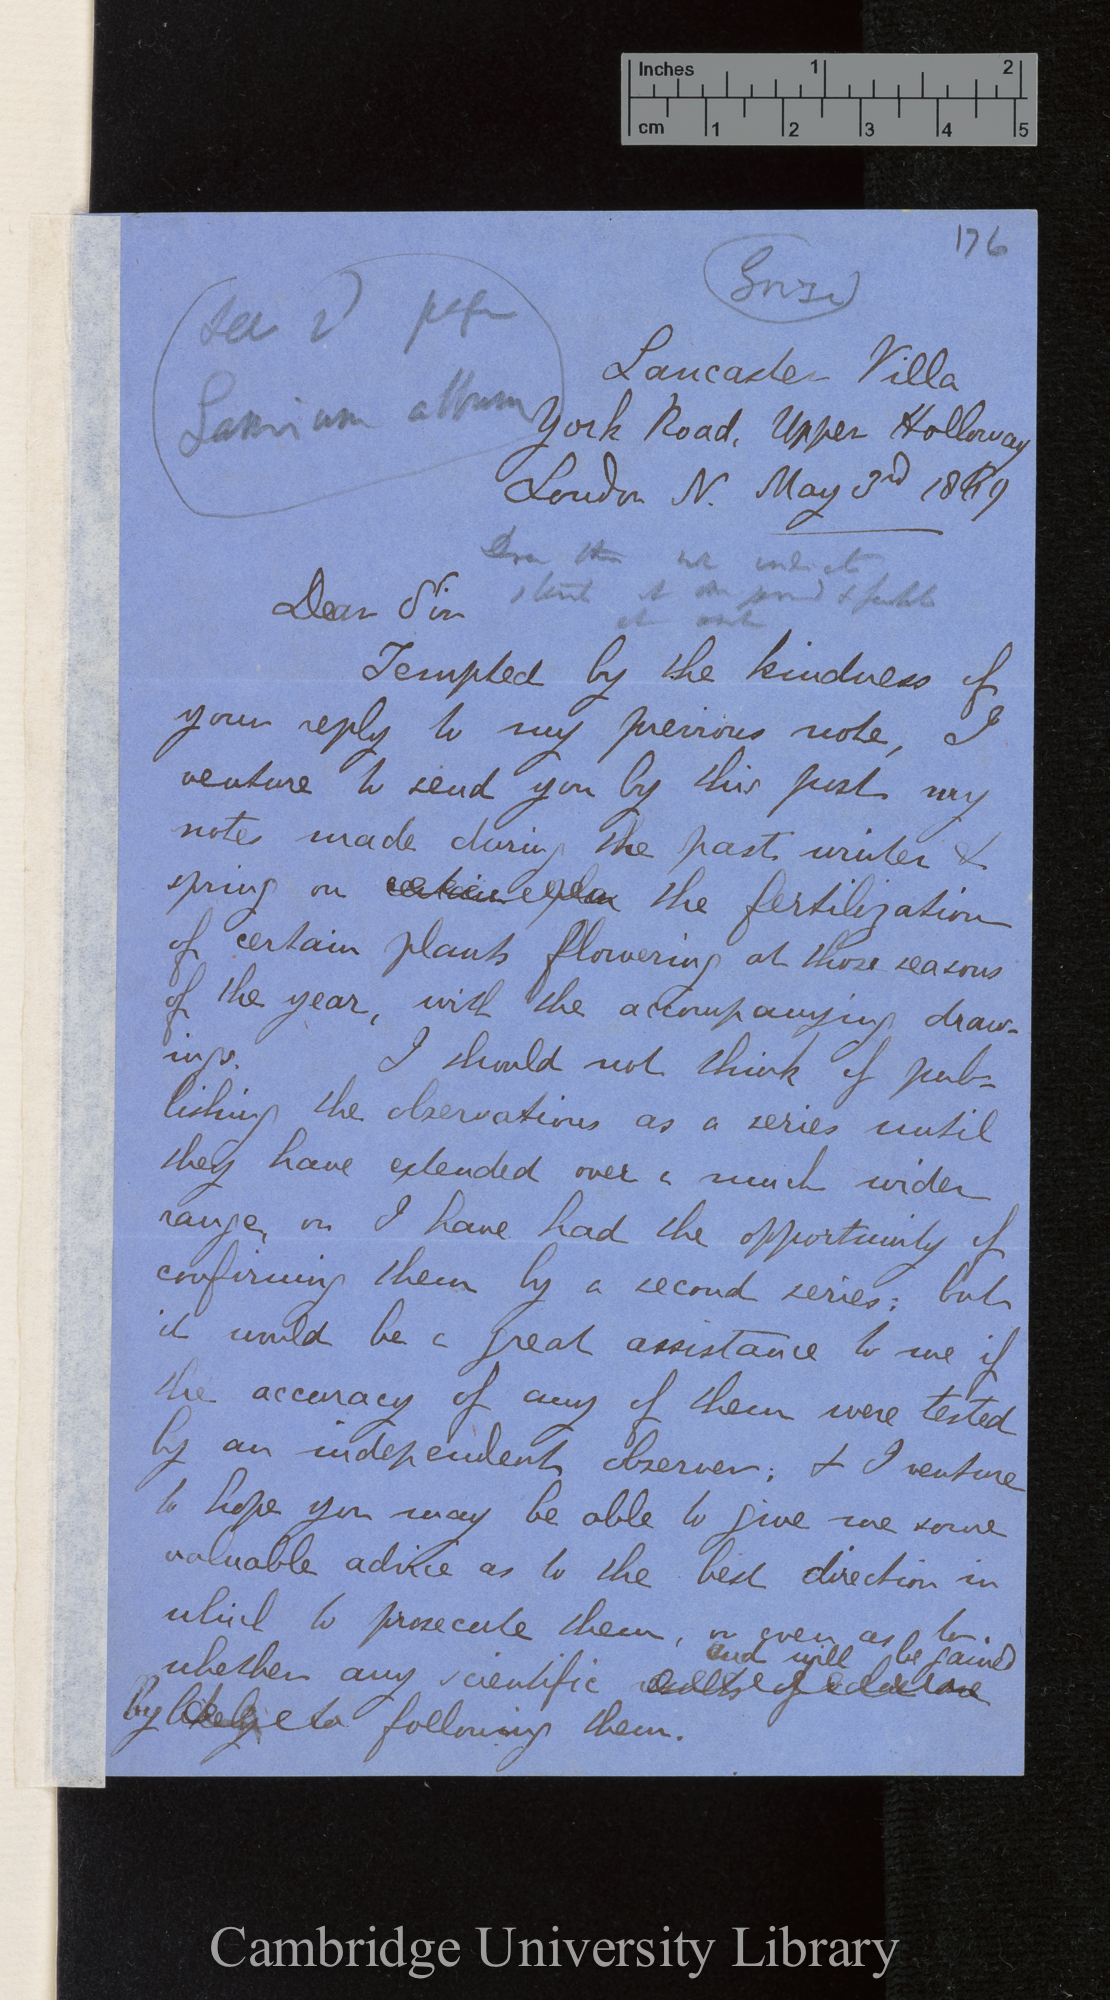 Inches 1 2
cm 1 2 3 4 5
176
Lamium album
Lancaster Villa
York Road, Upper Holloway
London N. May 3rd 1869
Dear Sir
Tempted by the kindness of
your reply to my previous note, I
venture to send you by this post my
notes made during the past winter &
spring on certain the fertilization
of certain plants flowering at those seasons
of the year, with the accompanying draw-
ings. I should not think of pub-
lishing the observations as a series until
they have extended over a much wider
range, or I have had the opportunity of
confirming them by a second series; but
it would be a great assistance to me if
the accuracy of any of them were tested
by an independent observer; & I venture
to hope you may be able to give me some
valuable advice as to the best direction in
which to prosecute them, or even as to
whether any scientific end will be gained
by following them.
Cambridge University Library